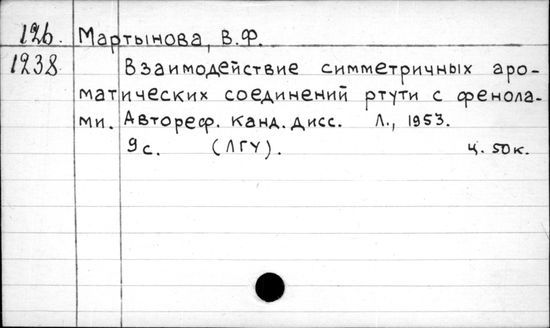 126. Мартынова, В.Ф.
1238 Взаимодействие симметричных аро-
матических соединений ртути с фенола-
ми. Автореф. канд. дисс. Л., 1953.
9 с. (ЛГУ). ц. 50 к.